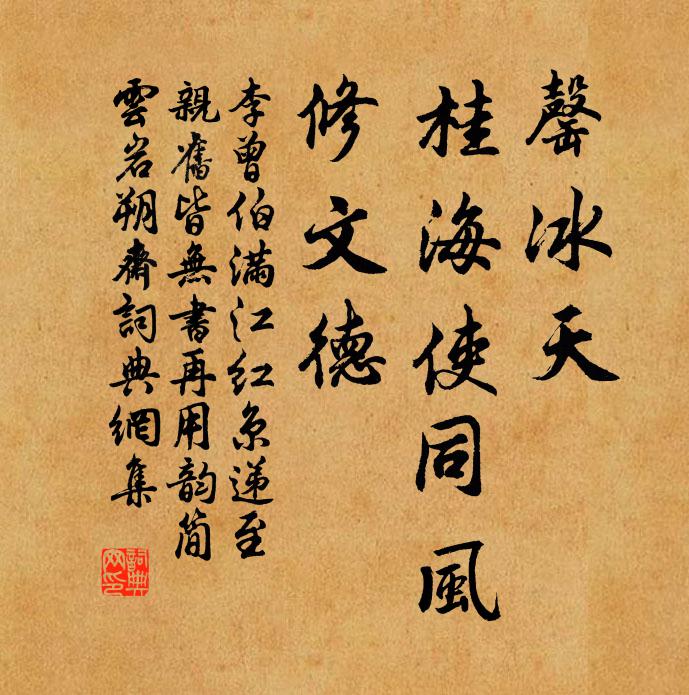 罄冰天
桂海使同風
修文德
李曾伯滿江红京递至
親舊皆無書再用韵简
雲岩朔齋詞典網集
詞典網印